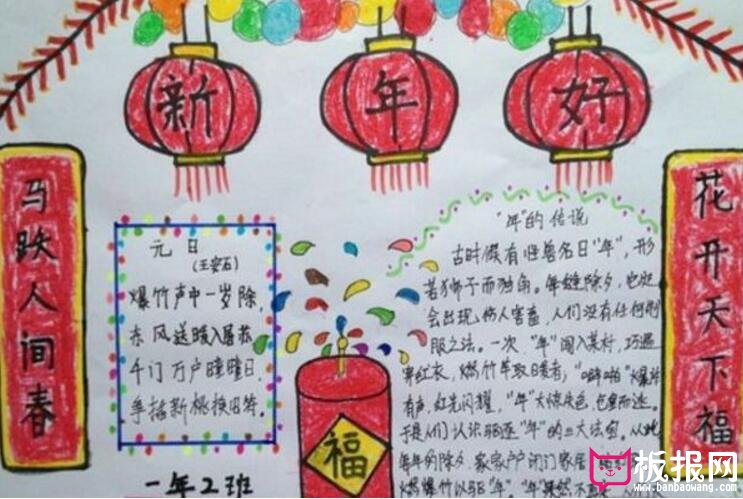 新年好
马跃人间春
花开天下福
元日
(王安石)
爆竹声中一岁除,
东风送暖入屠苏
千门万户曈曈日,
手揣新桃换旧符。
一年2班
福
"年"的传说
古时候有怪兽名曰"年",形
若狮子而独角。每逢除夕,也就
会出现,伤人害畜,人们没有任何制
服之法。一次,"年"闯入某村,巧遇
穿红衣,燃竹竿取暖者;"噼啪"爆炸
有声,红光闪耀,"年"大惊失色,仓皇而逃。
于是人们认识驱逐"年"的三大法宝。从此
每年的除夕,家家户户闭门家居
燃爆竹以驱"年","年"果然不
板报网
www.banbaowang.com